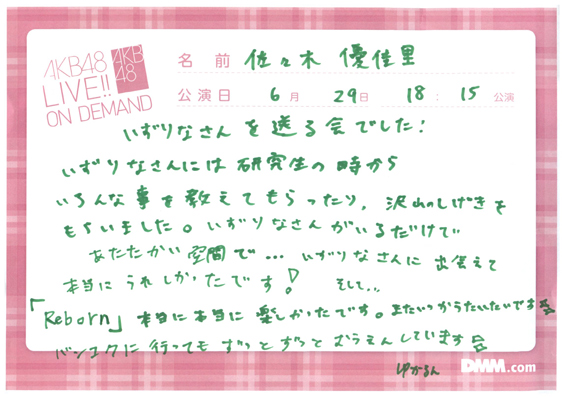 AKB48
LIVE!!
ON DEMAND
AKB
48
名前 佐々木 優佳里
公演日 6月 29日 18:15 公演
いずりなさんを送る会でした!
いずりなさんには研究生の時から
いろんな事を教えてもらったり、沢山のしげきを
もらいました。いずりなさんがいるだけで
あたたかい空間で… いずりなさんに出会えて
本当にうれしかったです! そして..
「Reborn」本当に本当に楽しかったです。またいつかうたいたいです
バンコクに行ってもずっとずっとおうえんしています
ゆかるん
DMM.com